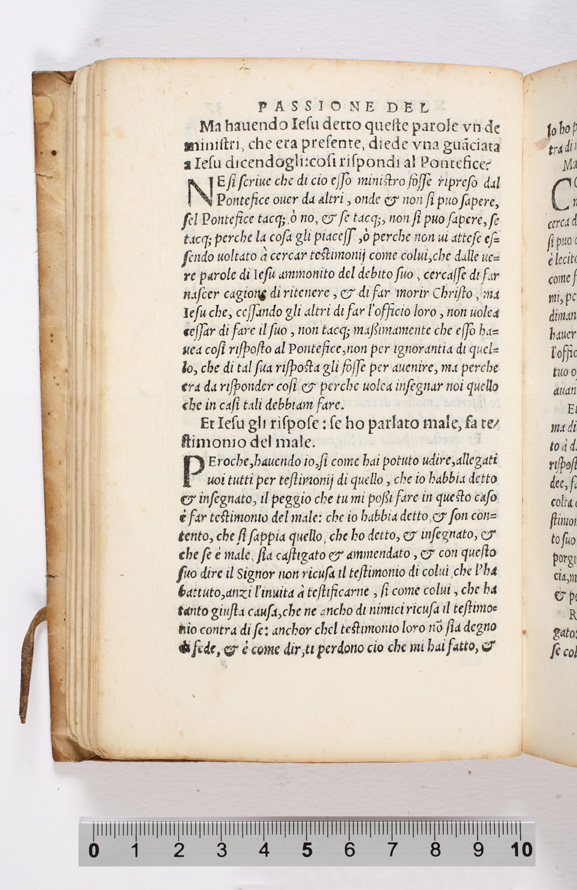 PASSIONE DEL
Ma hauendo Iesu detto queste parole vn de
ministri, che era presente, diede vna guāciata
a Iesu dicendogli: cosi rispondi al Pontefice?
NE si scriue che di cio esso ministro fosse ripreso dal
Pontefice ouer da altri, onde & non si puo sapere,
sel Pontefice tacq; ò no, & se tacq;, non si puo sapere, se
tacq; perche la cosa gli piacess, ò perche non ui attese es-
sendo uoltato à cercar testimonij come colui, che dalle ue-
re parole di Iesu ammonito del debito suo, cercasse di far
nascer cagione di ritenere, & di far morir Christo, ma
Iesu che, cessando gli altri di far l'officio loro, non uolea
cessar di fare il suo, non tacq; maßimamente che esso ha-
uea cosi risposto al Pontefice, non per ignorantia di quel-
lo, che di tal sua risposta gli fosse per auenire, ma perche
era da risponder cosi & perche uolea insegnar noi quello
che in casi tali debbiam fare.
Et Iesu gli rispose: se ho parlato male, fa te/
stimonio del male.
PEroche, hauendo io, si come hai potuto udire, allegati
uoi tutti per testimonij di quello, che io habbia detto
& insegnato, il peggio che tu mi poßi fare in questo caso
é far testimonio del male: che io habbia detto, & son con-
tento, che si sappia quello, che ho detto, & insegnato, &
che se é male, sia castigato & ammendato, & con questo
suo dire il Signor non ricusa il testimonio di colui, che l'ha
battuto, anzi l'inuita à testificarne, si come colui, che ha
tanto giusta causa, che ne ancho di nimici ricusa il testimo-
nio contra di se: anchor chel testimonio loro nō sia degno
di fede, & é come dir, ti perdono cio che mi hai fatto, &
0 1 2 3 4 5 6 7 8 9 10